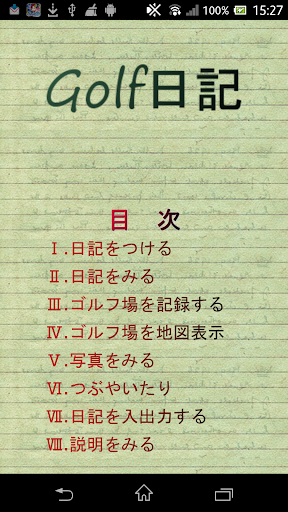 100% 15:27
Golf日記
目 次
Ⅰ.日記をつける
Ⅱ.日記をみる
Ⅲ.ゴルフ場を記録する
Ⅳ.ゴルフ場を地図表示
Ⅴ.写真をみる
Ⅵ.つぶやいたり
Ⅶ.日記を入出力する
Ⅷ.説明をみる